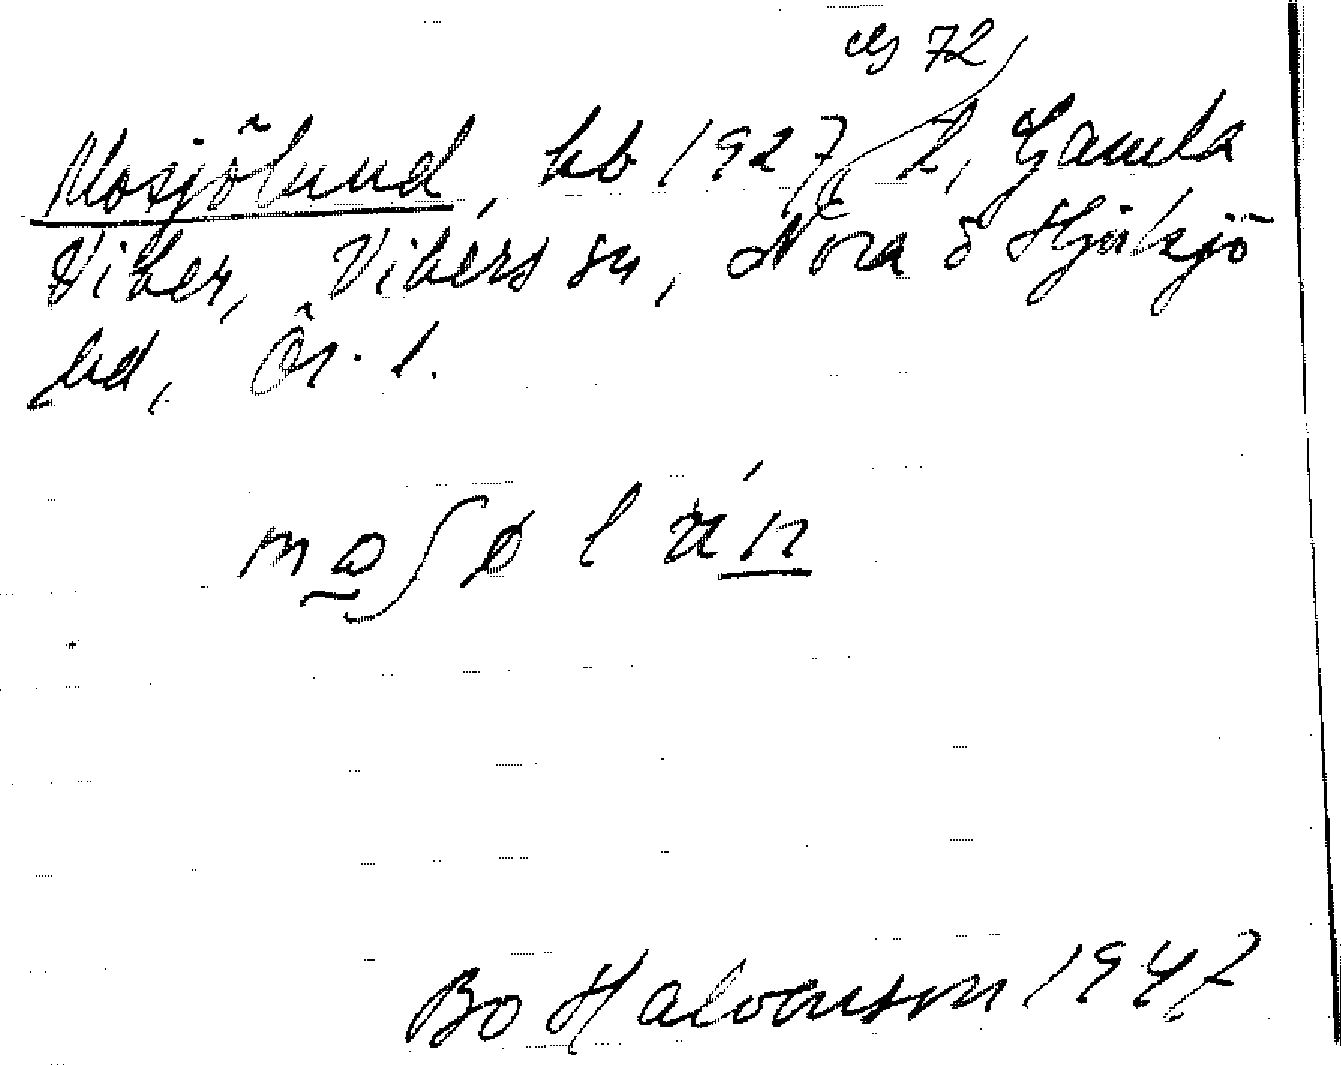 eg 72
Mosjölund, kb 1927, l, Gamla
Viker, Vikers sn, Nora o Hjulsjö
hd, Ör. l.
moʃølún
Bo Halvarsson 1947